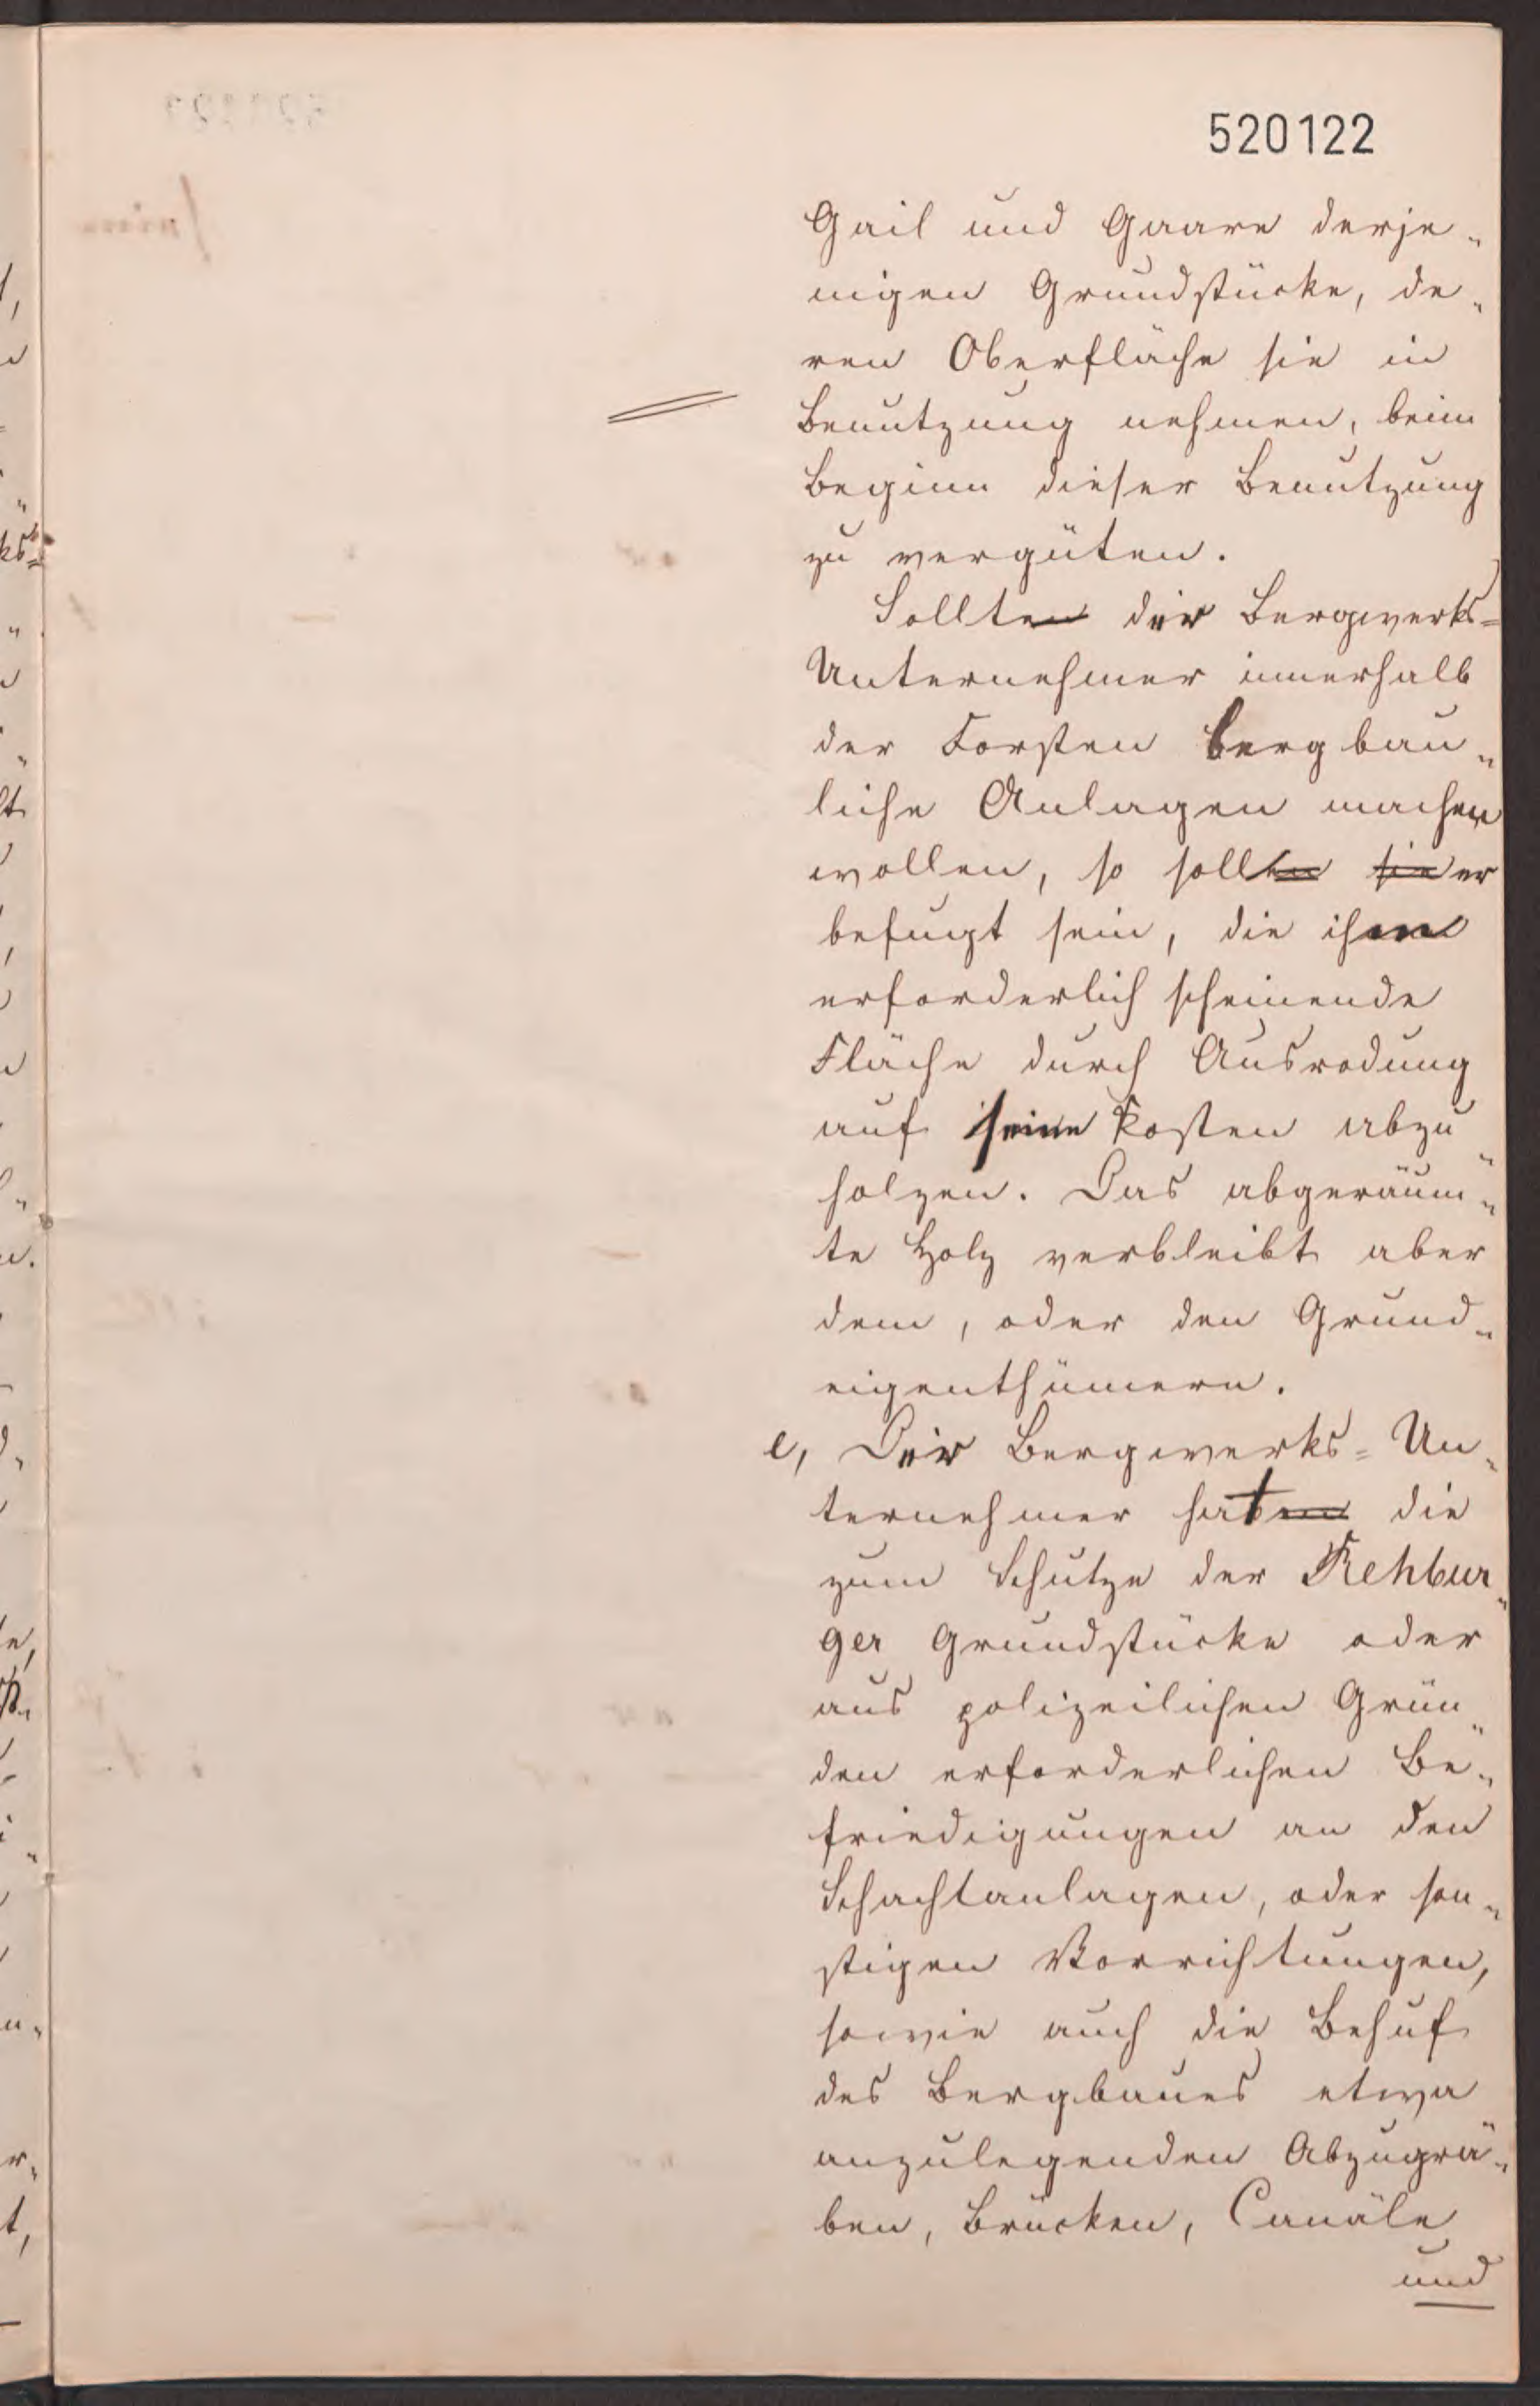 520122
Gail und Gaare derje„
nigen Grundstücke, de„
ren Oberfläche sie in
Benutzung nehmen, beim
Beginn dieser Benutzung
zu vergüten.
Sollten der Bergwerks=
Unternehmer innerhalb
der Forsten bergbau„
liche Anlagen machen
wollen, so sollen sie er
befugt sein, die ihm
erforderlich scheinende
Fläche durch Ausrodung
auf seine Kosten abzu„
holzen. Das abgeräum„
te Holz verbleibt aber
dem, oder den Grund„
eigenthümern.
e, Der Bergwerks=Un„
ternehmer hat die
zum Schutze der Rehbur„
ger Grundstücke oder
aus polizeilichen Grün„
den erforderlichen Be„
friedigungen an den
Schachtanlagen, oder son„
stigen Vorrichtungen,
sowie auch die Behuf
des Bergbaues etwa
anzulegenden Abzugrä„
ben, Brücken, Canäle
und